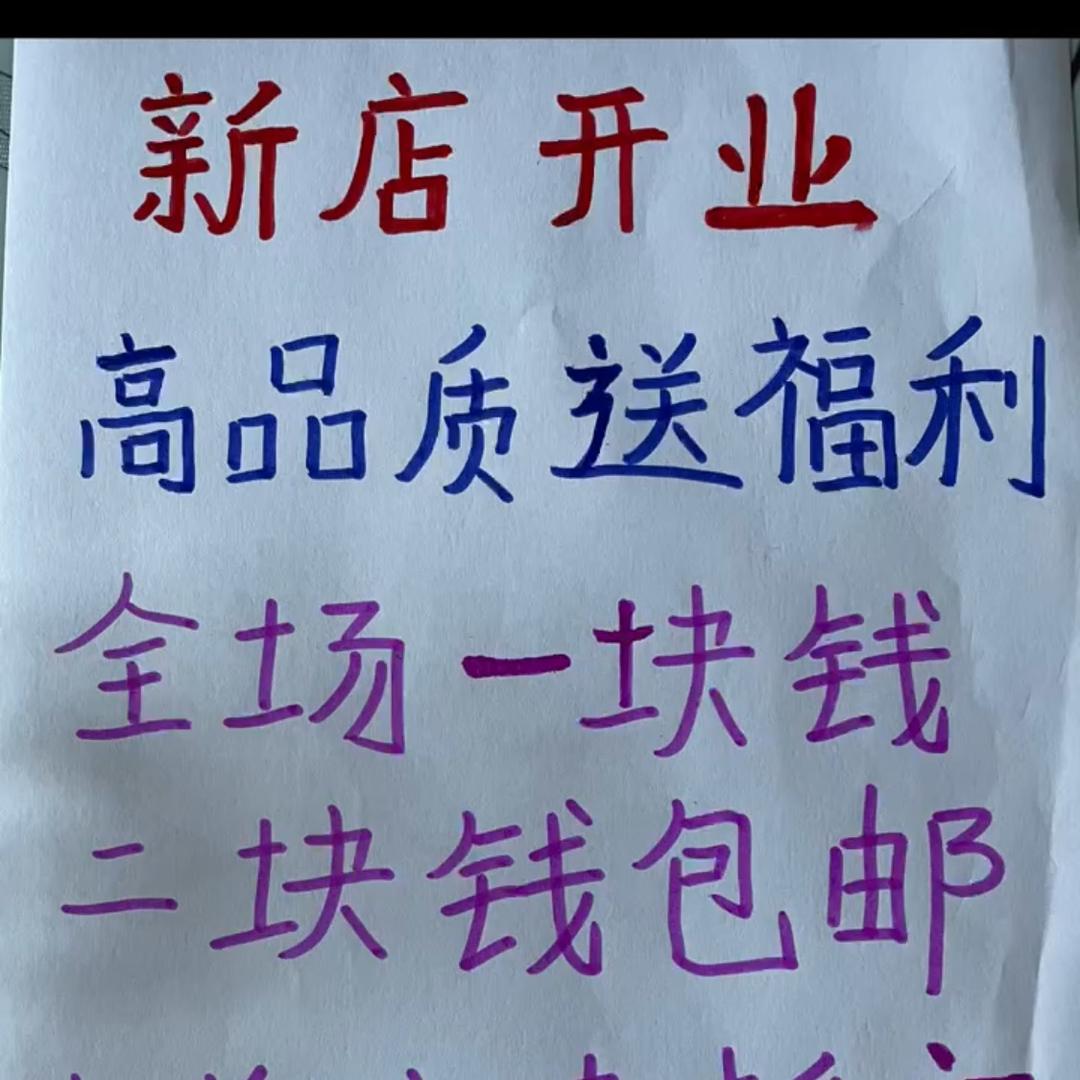 新店开业
高品质送福利
全场一块钱
二块钱包邮